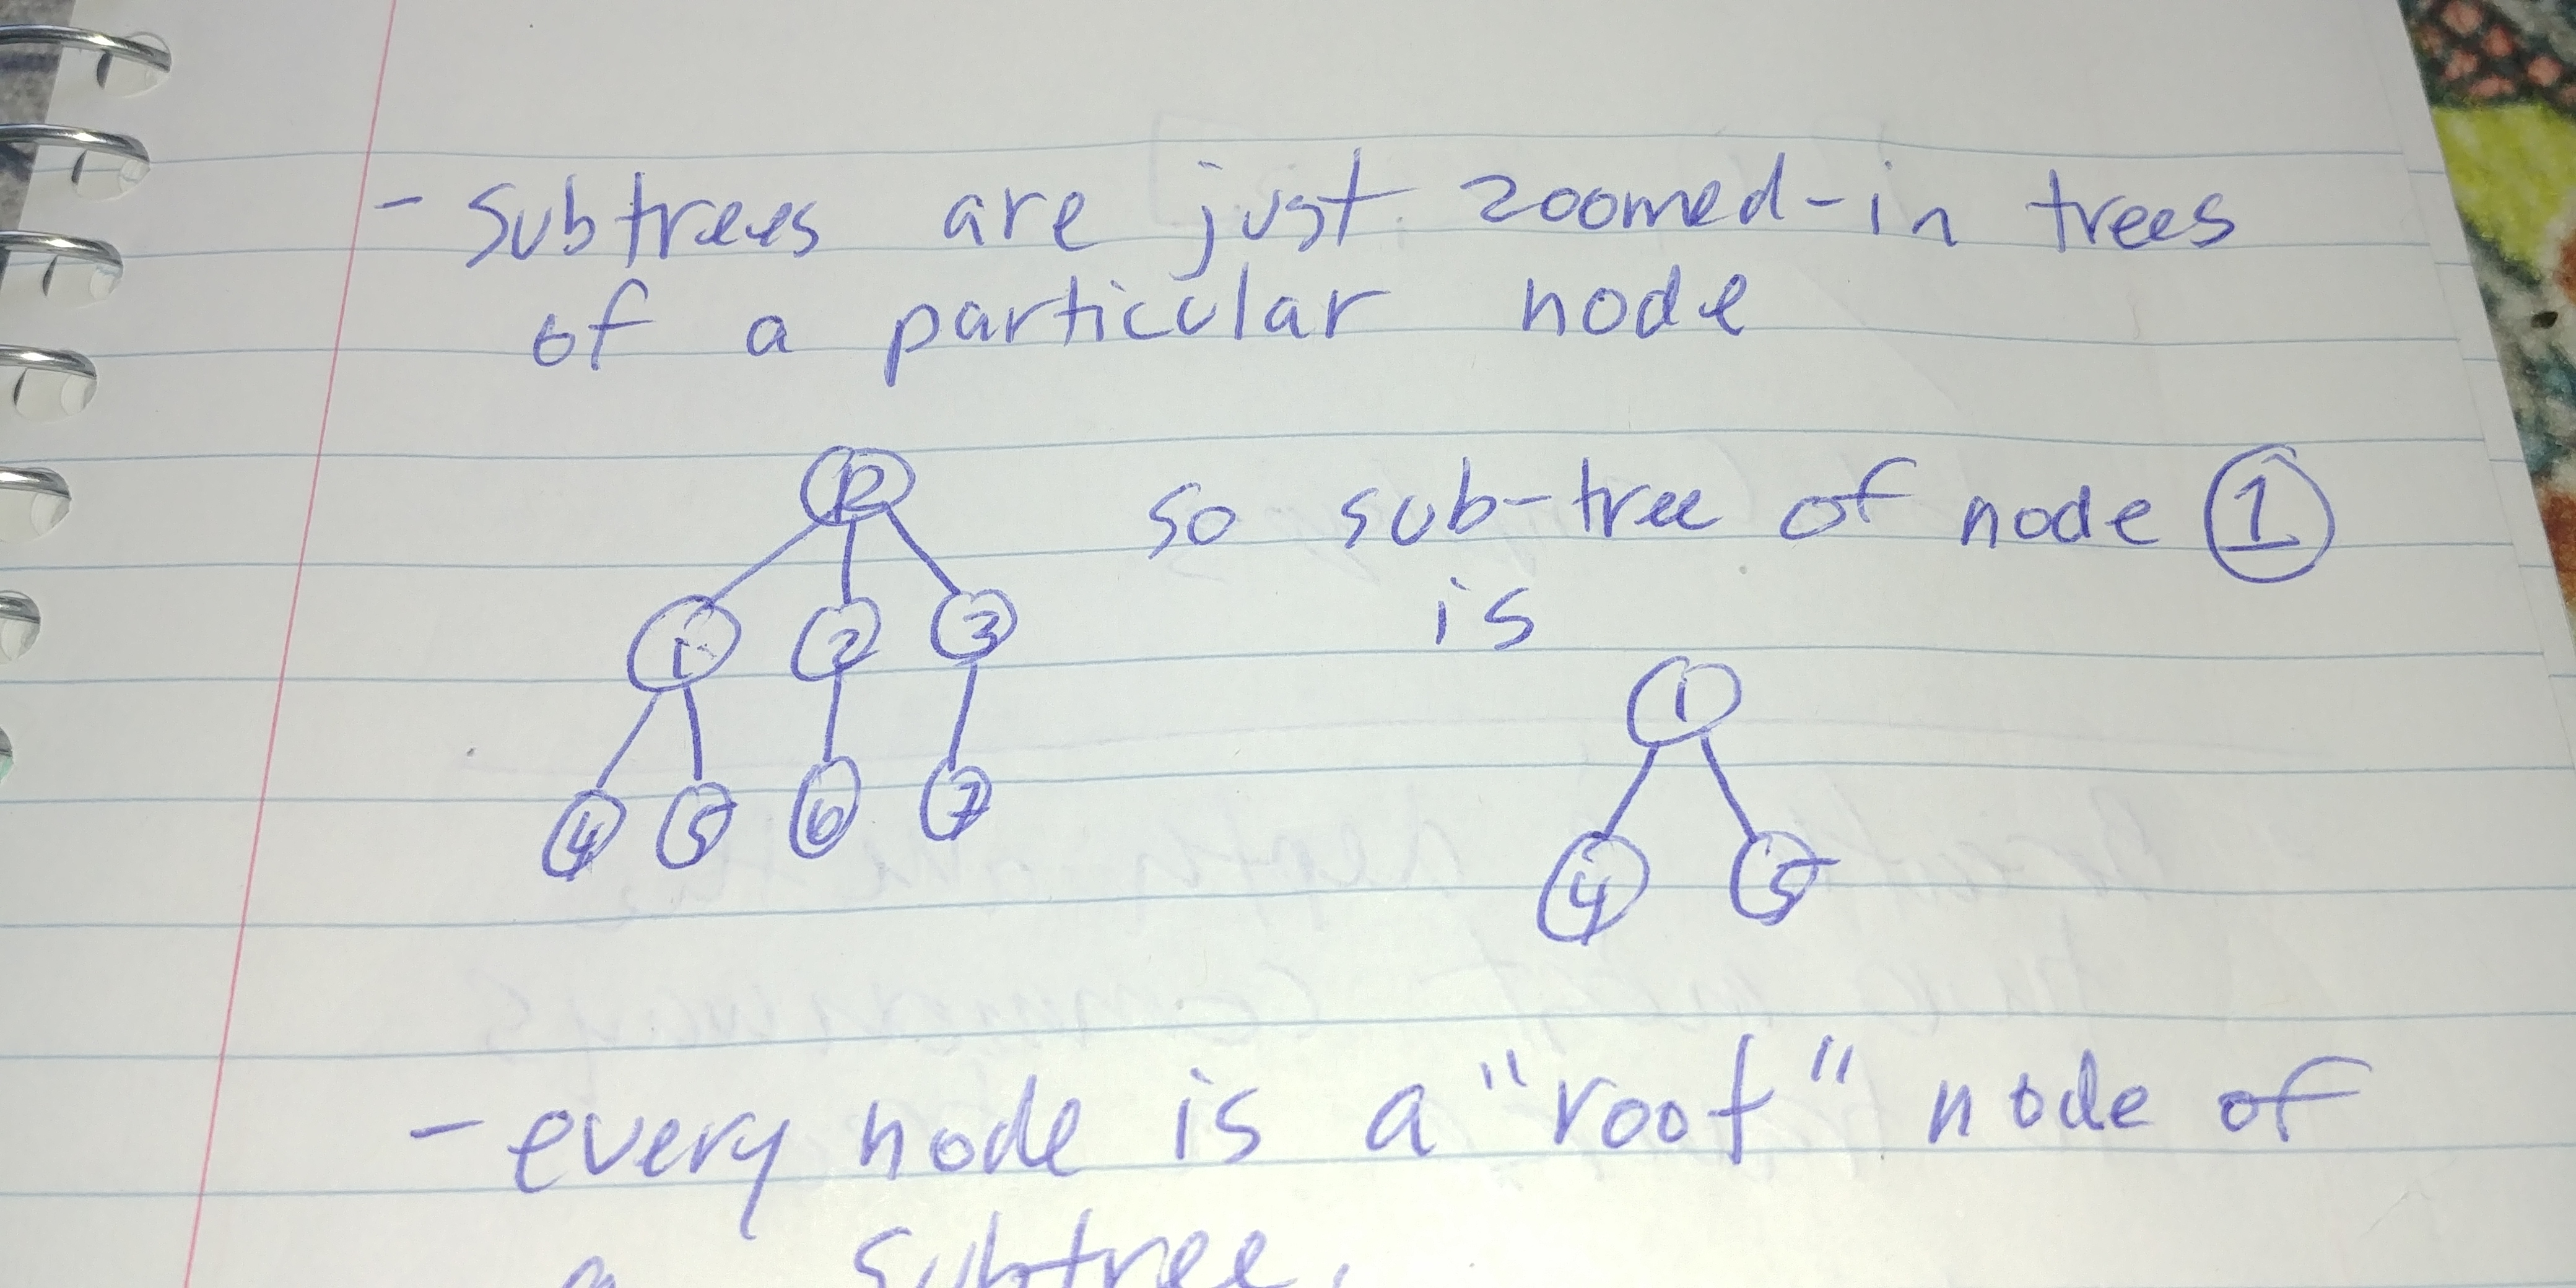 - Subtrees are just zoomed-in trees
of a particular node
so sub-tree of node 1
is
1 2 3
4 5 6 7
1
4 5
- every node is a "root" node of
a subtree.